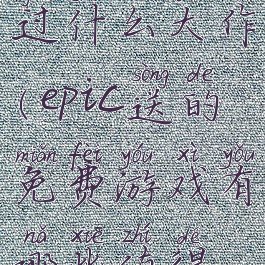 过什么大作
sòng de
(epic送的
miǎn fèi yóu xì yǒu
免费游戏有
nǎ xiē zhí de
哪些值得